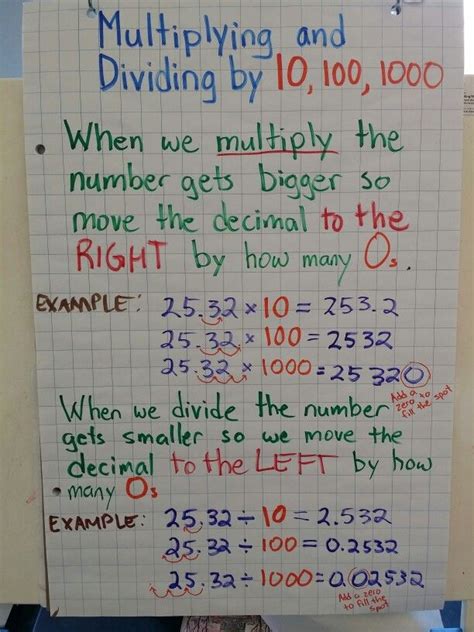 Multiplying and
Dividing by 10, 100, 1000
• When we multiply the
number gets bigger so
move the decimal to the
RIGHT by how many 0s.
EXAMPLE: 25.32 × 10 = 253.2
25.32 × 100 = 2532
25.32 × 1000 = 25320
Add a
zero to
fill the spot
When we divide the number
gets smaller so we move the
decimal to the LEFT by how
• many 0s
EXAMPLE: 25.32 ÷ 10 = 2.532
25.32 ÷ 100 = 0.2532
25.32 ÷ 1000 = 0.02532
Add a zero
to fill the
spot